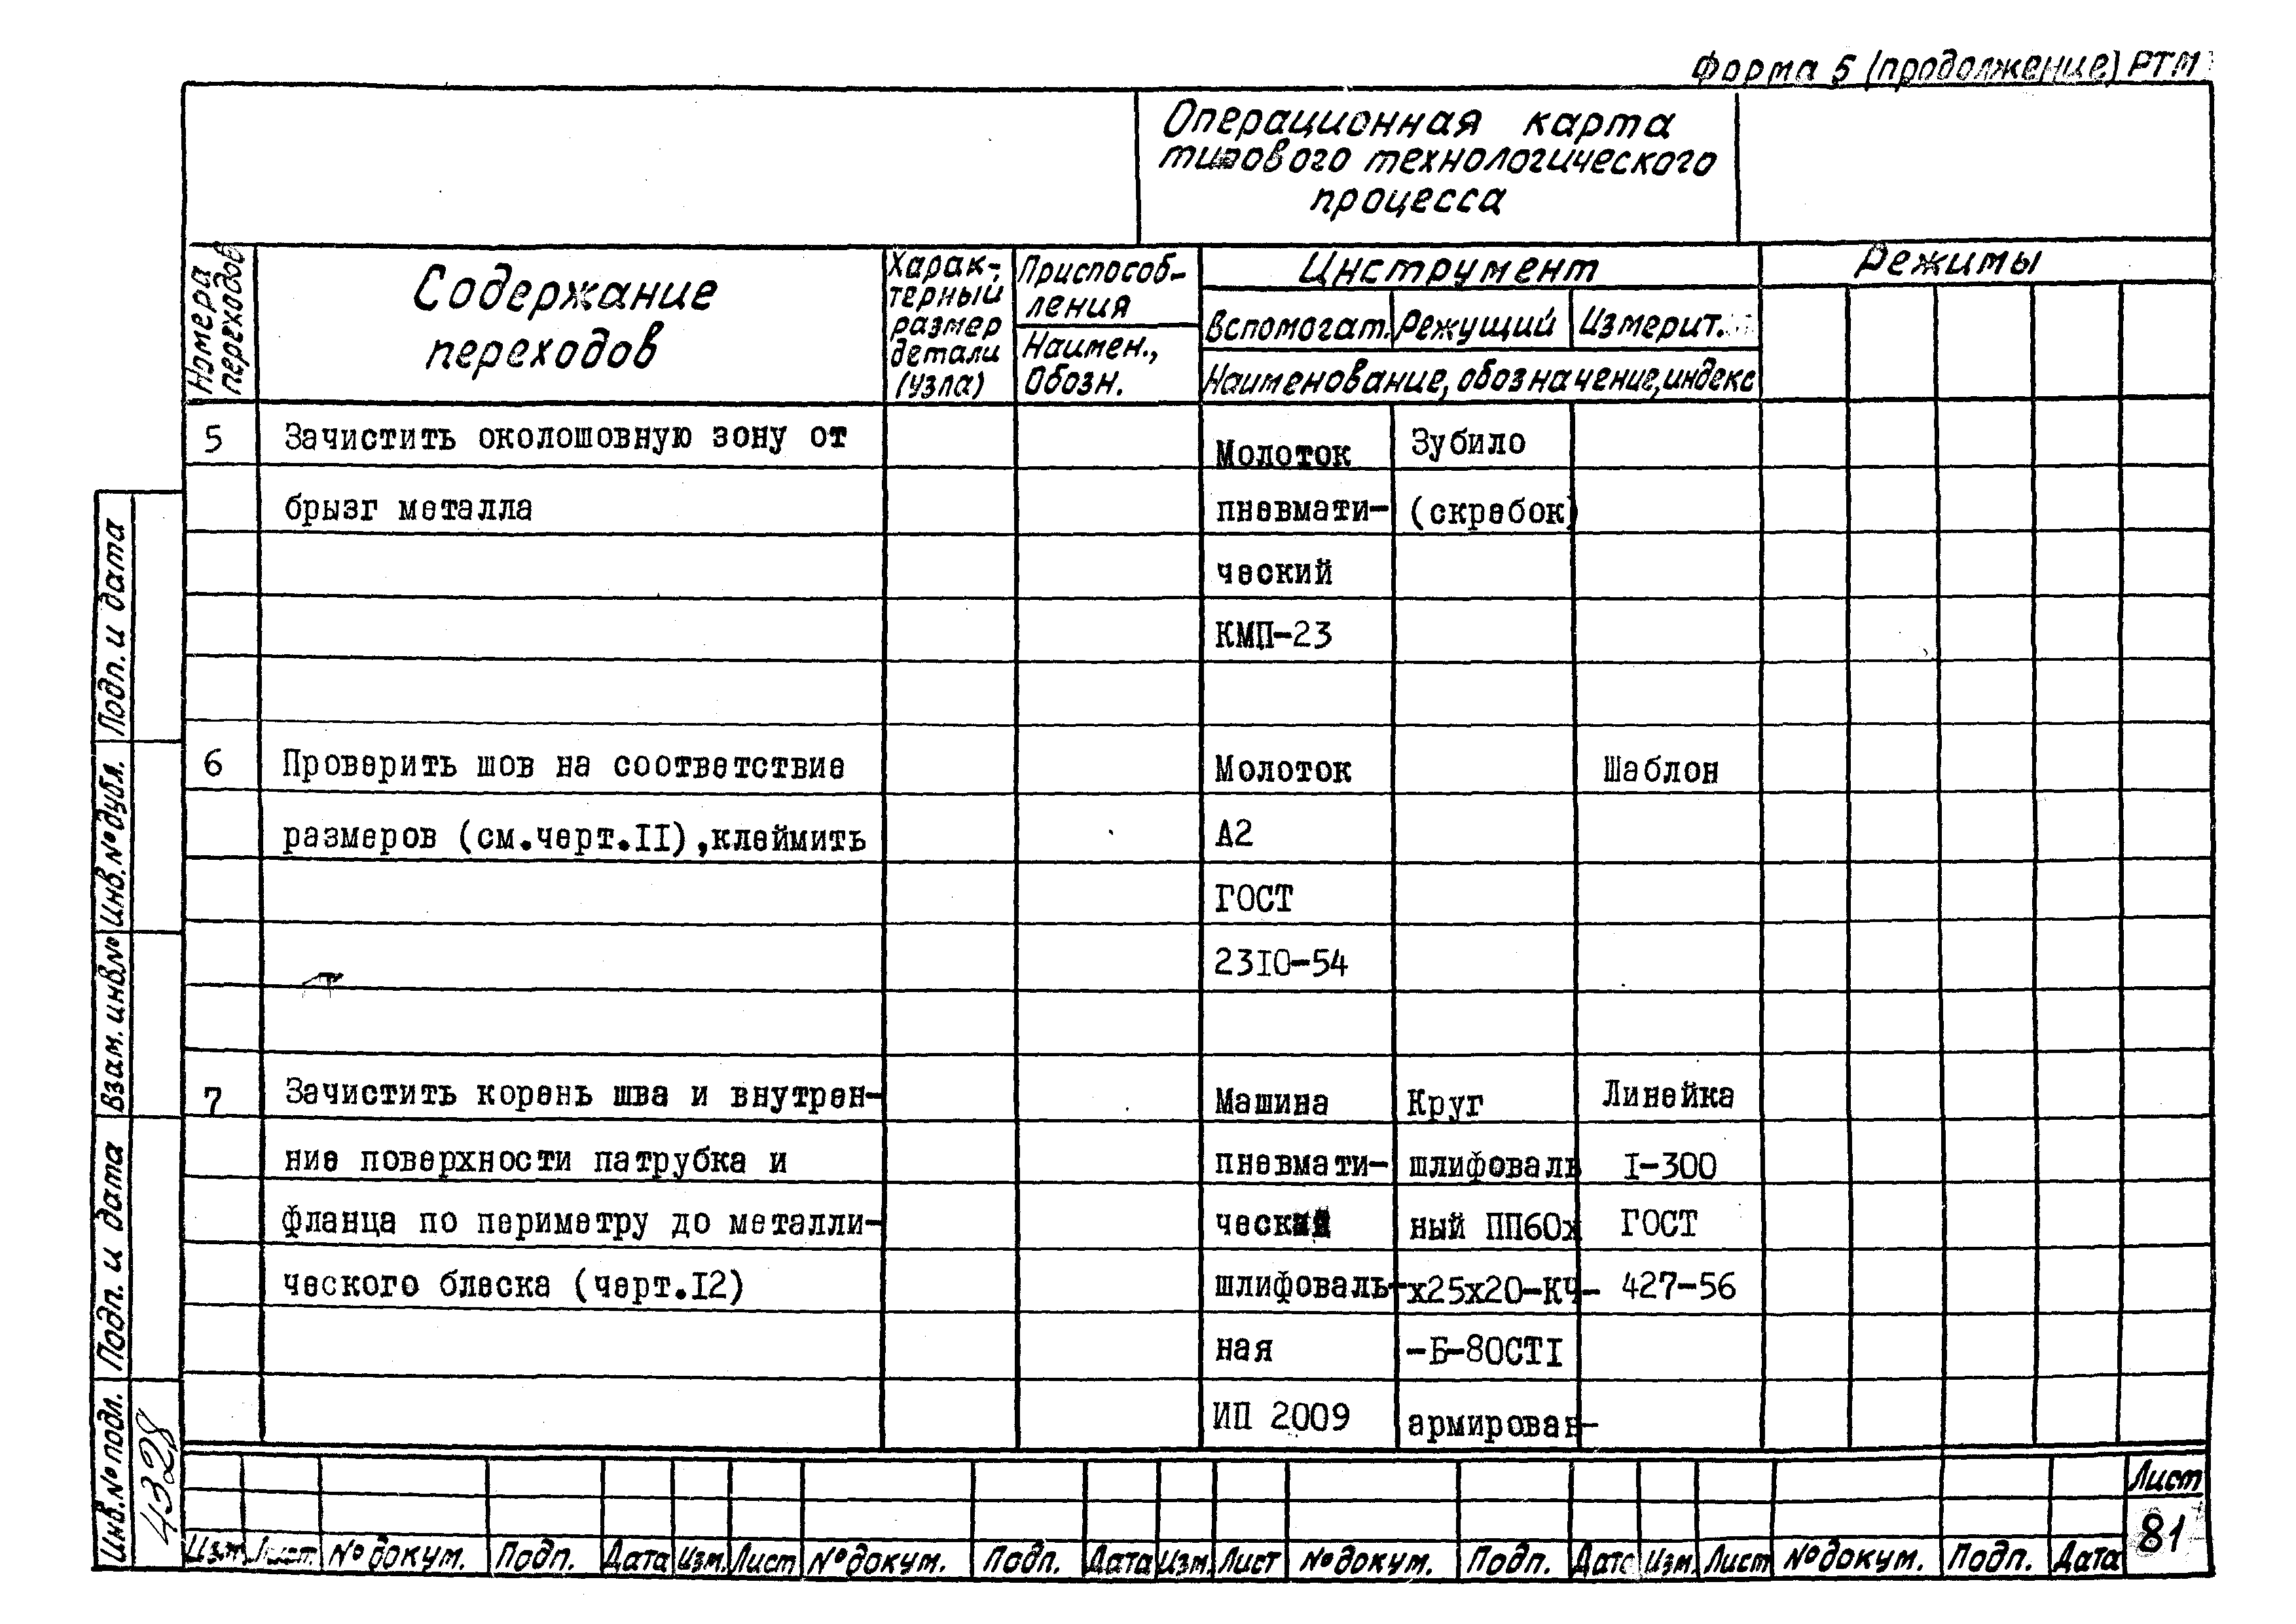 Форма 5 (продолжение) РТМ
Операционная карта
типового технологического
процесса
Номера
переходов
Содержание
переходов
Харак-
терный
размер
детали
(узла)
Приспособ-
ления
Наимен.,
Обозн.
Инструмент
Вспомогат. Режущий Измерит.
Наименование, обозначение, индекс
Режимы
5 Зачистить околошовную зону от Молоток Зубило
брызг металла пневмати- (скребок)
ческий
КМП-23
6 Проверить шов на соответствие Молоток Шаблон
размеров (см.черт.II),клеймить А2
ГОСТ
23I0-54
7 Зачистить корень шва и внутрен- Машина Круг Линейка
ние поверхности патрубка и пневмати- шлифоваль I-300
фланца по периметру до металли- ческая ный ПП60х ГОСТ
ческого блеска (черт.I2) шлифоваль- х25х20-КЧ- 427-56
ная -Б-80СТI
ИП 2009 армирован-
Подп. и дата
Инв.№ дубл.
Взам. инв.№
Подп. и дата
Инв.№ подл.
4328
Изм Лист № докум. Подп. Дата Изм. Лист № докум. Подп. Дата Изм. Лист № докум. Подп. Дата Изм. Лист № докум. Подп. Дата
Лист
81